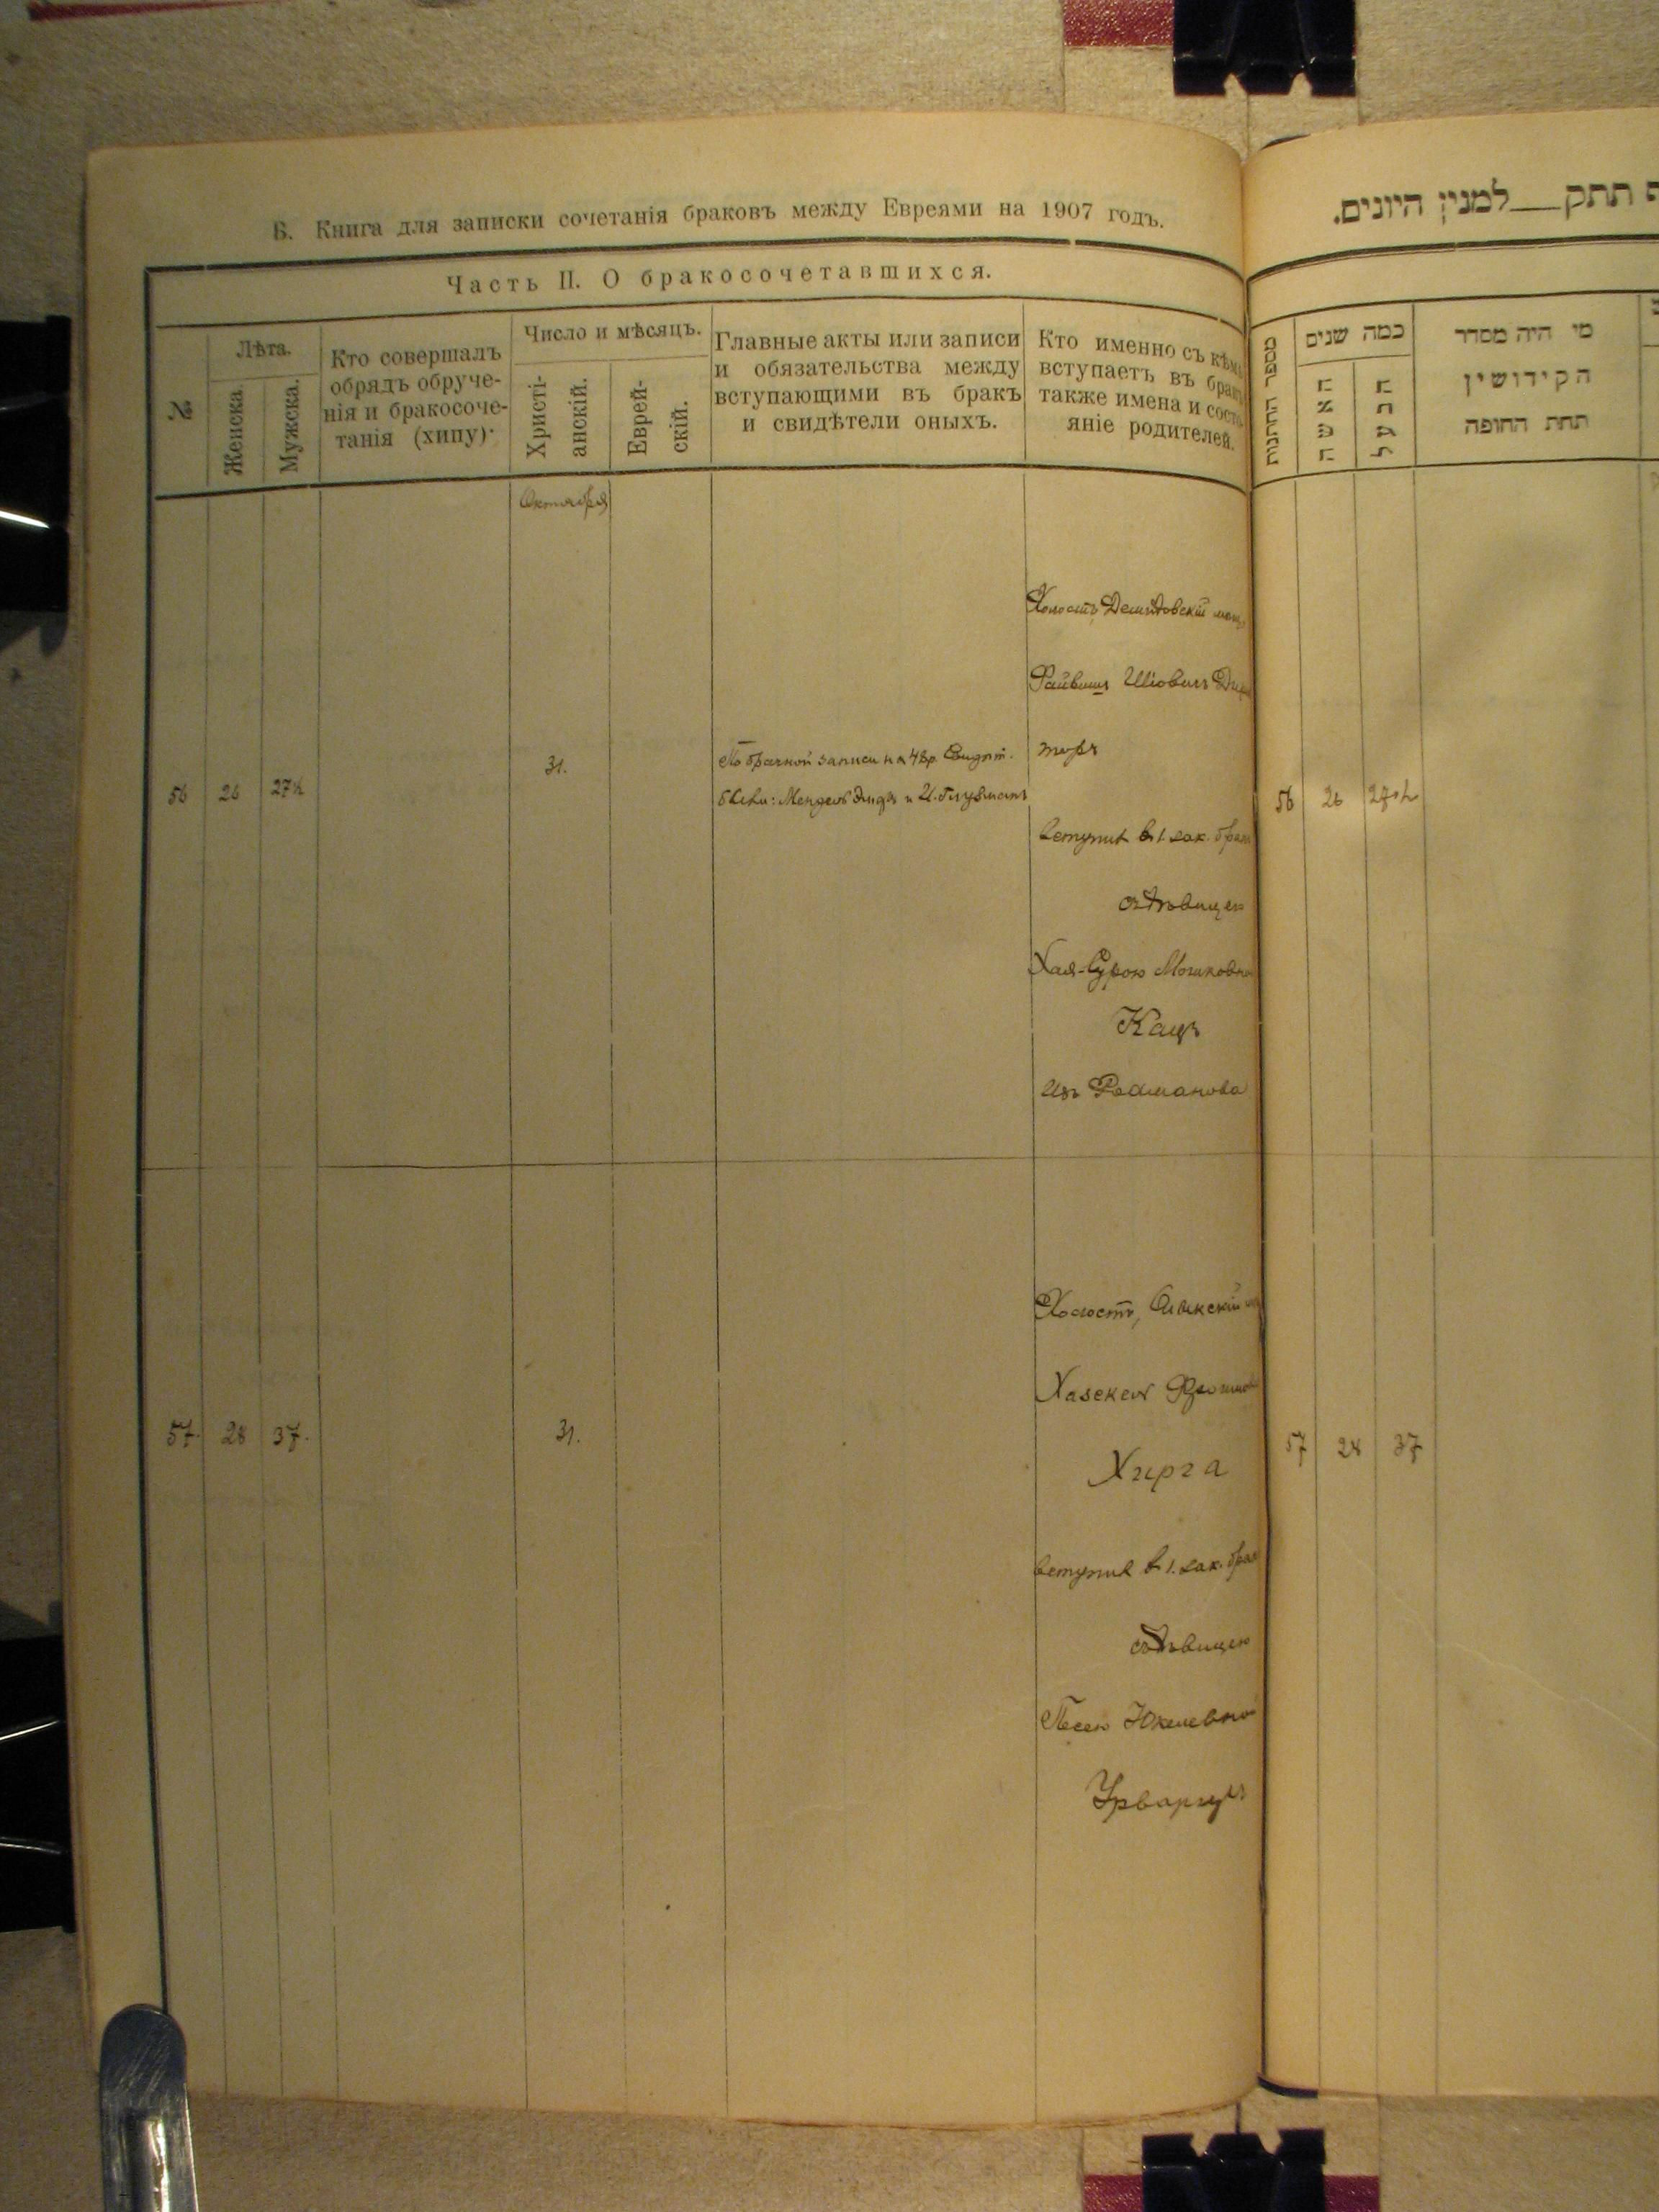 Б. Книга для записки сочетанія браковъ между Евреями на 1907 годъ.
Часть II. О бракосочетавшихся.
№
Лѣта.
Женска.
Мужска.
Кто совершалъ
обрядъ обруче-
нія и бракосоче-
танія (хипу).
Число и мѣсяцъ.
Христі-
анскій.
Еврей-
скій.
Главные акты или записи
и обязательства между
вступающими въ бракъ
и свидѣтели оныхъ.
Кто именно съ кѣмъ
вступаетъ въ бракъ
также имена и состо-
яніе родителей.
Октября
56 26 27½
31.
По брачной записи на 48р. Свидѣт.
были: Мендель и
Холостъ,
Шіовичъ
вступил в 1. зак. брак
съ дѣвицею
Хая-Сурою Мошковною
Кацъ
Изъ
57. 28 37.
31.
Холостъ,
Хаскел
Хирга
вступил в 1. зак. брак
съ дѣвицею
Песею
תתק__למנין היונים.
מספר החתנות
כמה שנים
האשה
הבעל
מי היה מסדר
הקידושין
תחת החופה
56 26 27½
57 28 37